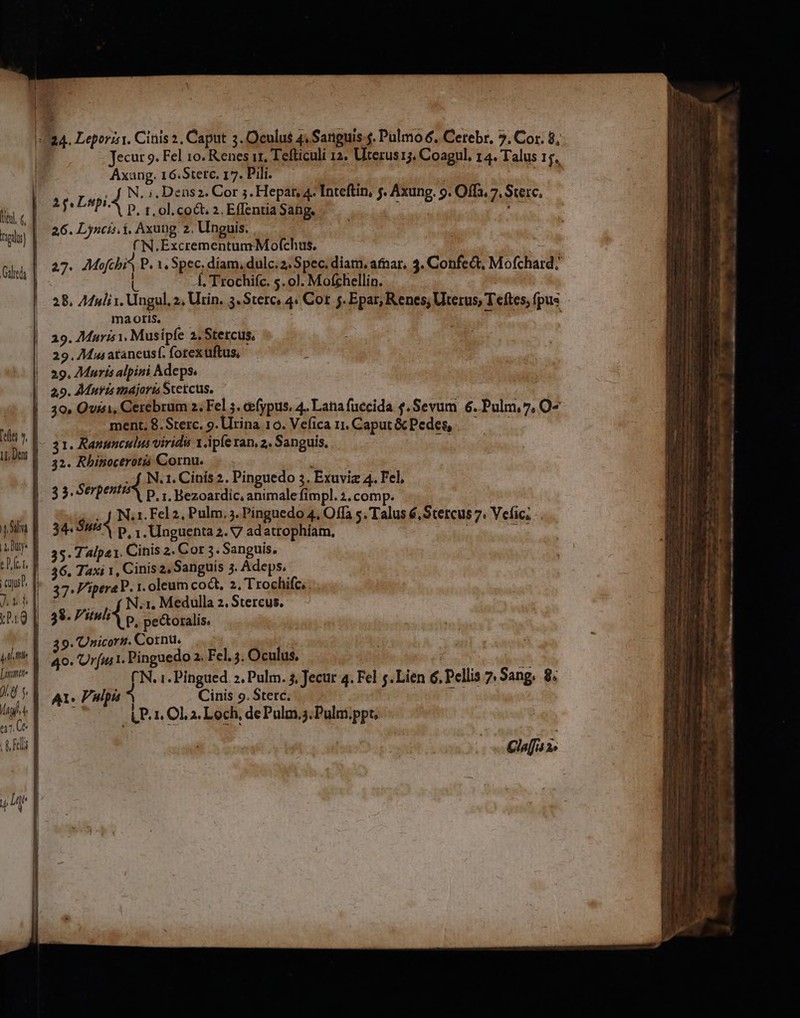 24. Leporis 1. Cinis 2. Caput 3. Oculus 4. Sanguis 5. Pulmo 6. Cerebr. 7. Cor. 8.
Jecur 9. Fel 10. Renes 11. Teſticuli 12. Uterus 13. Coagul. 14. Talus 15.
Axung. 16. Sterc. 17. Pili.
25. Lupi. { N. 1. Dens 2. Cor 3. Hepar, 4. Inteſtin, 5. Axung. 9. Oſſa. 7. Sterc.
P. 1. ol. coct. 2. Eſſentia Sang.
26. Lyncis. 1. Axung 2. Unguis.
{ N. Excrementum Moſchus.
27. Moſchi { P. 1. Spec. diam. dulc. 2. Spec. diam. amar. 3. Confect, Moſchard.
{ 1. Trochiſc. 5. ol. Moſchellin.
28. Muli 1. Ungul. 2. Urin. 3. Sterc. 4. Cor 5. Epar, Renes, Uterus, Teſtes, ſpus
maoris.
29. Muris 1. Mus ipſe 2. Stercus.
29. Mus araneus ſ. ſorex uſtus.
29. Muris alpini Adeps.
29. Muris majoris Stercus.
30. Ovis 1. Cerebrum 2. Fel 3. œſypus. 4. Lana ſuccida 5. Sevum 6. Pulm. 7. O-
ment. 8. Sterc. 9. Urina 10. Veſica 11. Caput & Pedes,
31. Ranunculus viridis 1. ipſe ran. 2. Sanguis.
32. Rhinocerotis Cornu.
33. Serpentis { N. 1. Cinis 2. Pinguedo 3. Exuviæ 4. Fel.
P. 1. Bezoardic. animale ſimpl. 2. comp.
34. Suis { N. 1. Fel 2. Pulm. 3. Pinguedo 4. Oſſa 5. Talus 6. Stercus 7. Veſic.
P. 1. Unguenta 2. ad atrophiam.
35. Talpæ 1. Cinis 2. Cor 3. Sanguis.
36. Taxi 1. Cinis 2. Sanguis 3. Adeps.
37. Vipera P. 1. oleum coct. 2. Trochiſc.
38. Vituli { N. 1. Medulla 2. Stercus.
P. pectoralis.
39. Unicorn. Cornu.
40. Urſus 1. Pinguedo 2. Fel. 3. Oculus.
{ N. 1. Pingued 2. Pulm. 3. Jecur 4. Fel 5. Lien 6. Pellis 7. Sang. 8.
41. Vulpis { Cinis 9. Sterc.
{ P. 1. Ol. 2. Loch. de Pulm. 3. Pulm. ppt.
Claſſis 2.